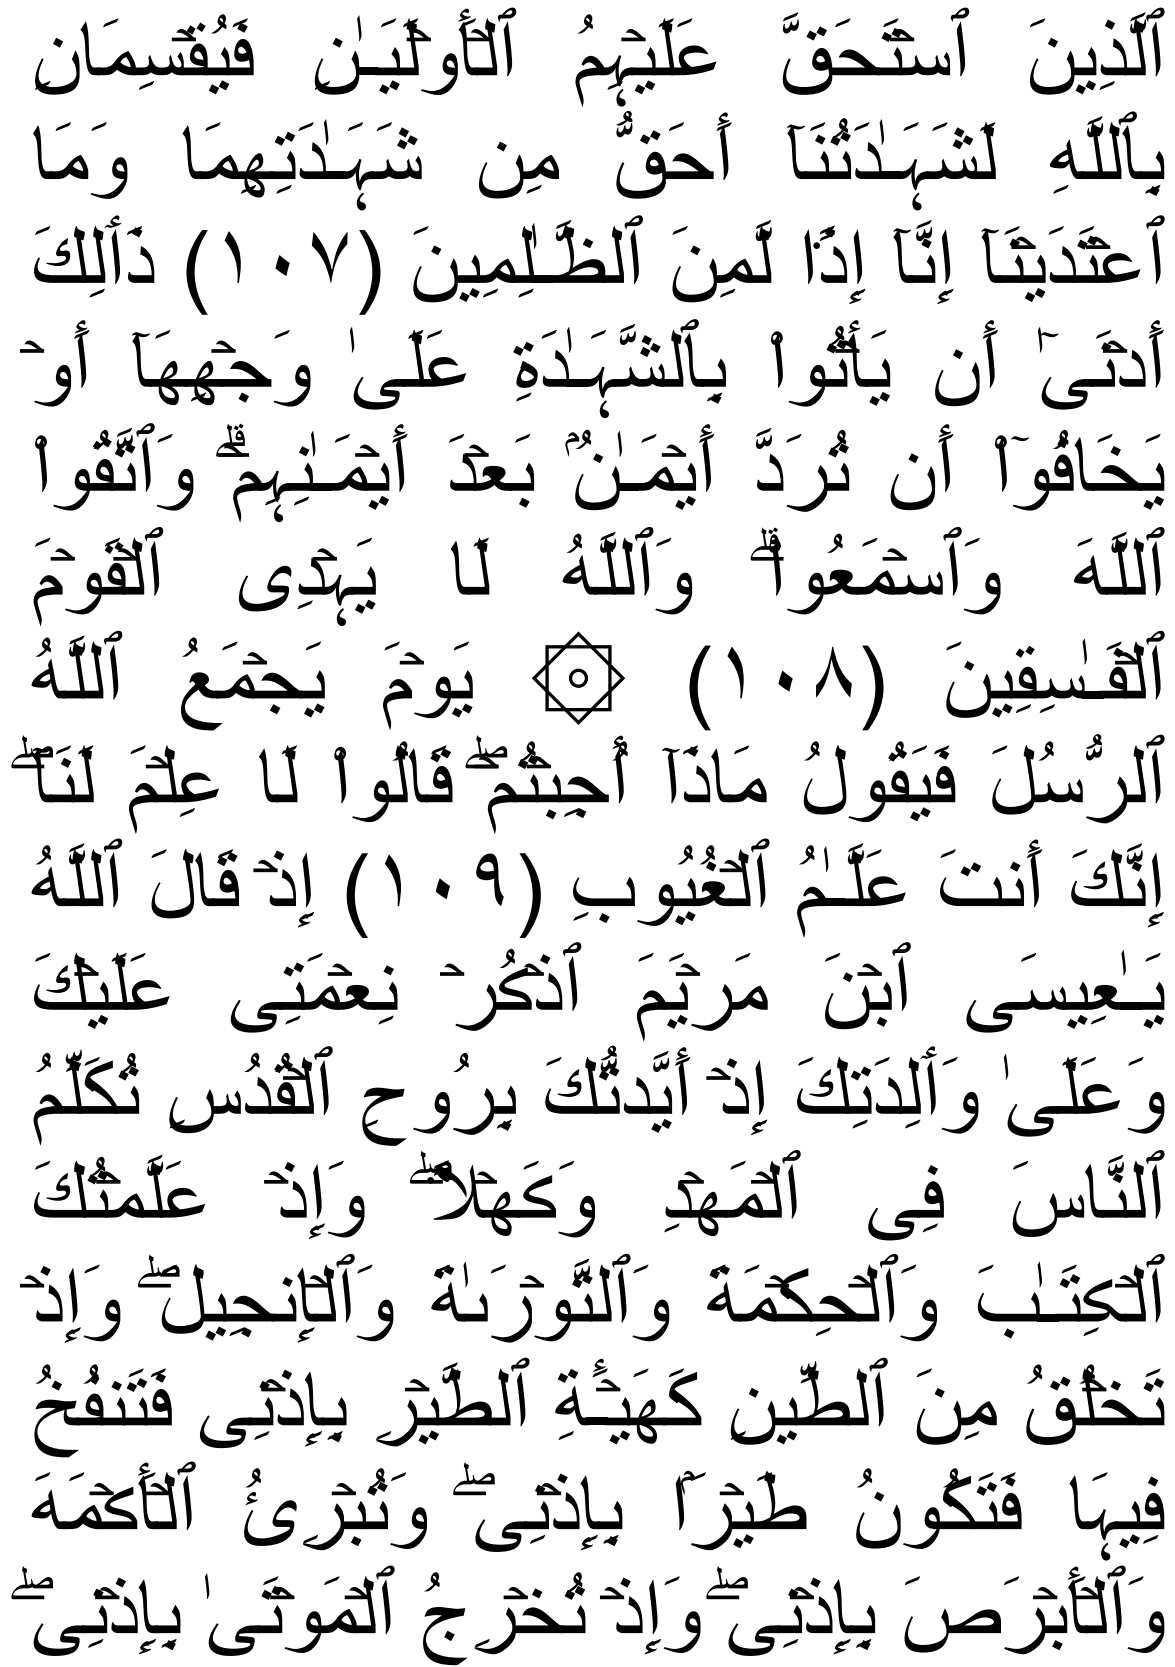 ٱلَّذِينَ ٱسۡتَحَقَّ عَلَيۡہِمُ ٱلۡأَوۡلَيَـٰنِ فَيُقۡسِمَانِ
بِٱللَّهِ لَشَہَـٰدَتُنَآ أَحَقُّ مِن شَہَـٰدَتِهِمَا وَمَا
ٱعۡتَدَيۡنَآ إِنَّآ إِذً۬ا لَّمِنَ ٱلظَّـٰلِمِينَ (١٠٧) ذَٲلِكَ
أَدۡنَىٰٓ أَن يَأۡتُواْ بِٱلشَّہَـٰدَةِ عَلَىٰ وَجۡهِهَآ أَوۡ
يَخَافُوٓاْ أَن تُرَدَّ أَيۡمَـٰنُۢ بَعۡدَ أَيۡمَـٰنِہِمۡ‌ۗ وَٱتَّقُواْ
ٱللَّهَ وَٱسۡمَعُواْ‌ۗ وَٱللَّهُ لَا يَہۡدِى ٱلۡقَوۡمَ
ٱلۡفَـٰسِقِينَ (١٠٨) ۞ يَوۡمَ يَجۡمَعُ ٱللَّهُ
ٱلرُّسُلَ فَيَقُولُ مَاذَآ أُجِبۡتُمۡ‌ۖ قَالُواْ لَا عِلۡمَ لَنَآ‌ۖ
إِنَّكَ أَنتَ عَلَّـٰمُ ٱلۡغُيُوبِ (١٠٩) إِذۡ قَالَ ٱللَّهُ
يَـٰعِيسَى ٱبۡنَ مَرۡيَمَ ٱذۡڪُرۡ نِعۡمَتِى عَلَيۡكَ
وَعَلَىٰ وَٲلِدَتِكَ إِذۡ أَيَّدتُّكَ بِرُوحِ ٱلۡقُدُسِ تُكَلِّمُ
ٱلنَّاسَ فِى ٱلۡمَهۡدِ وَڪَهۡلاً۬‌ۖ وَإِذۡ عَلَّمۡتُكَ
ٱلۡڪِتَـٰبَ وَٱلۡحِكۡمَةَ وَٱلتَّوۡرَٮٰةَ وَٱلۡإِنجِيلَ‌ۖ وَإِذۡ
تَخۡلُقُ مِنَ ٱلطِّينِ كَهَيۡـَٔةِ ٱلطَّيۡرِ بِإِذۡنِى فَتَنفُخُ
فِيہَا فَتَكُونُ طَيۡرَۢا بِإِذۡنِى‌ۖ وَتُبۡرِئُ ٱلۡأَڪۡمَهَ
وَٱلۡأَبۡرَصَ بِإِذۡنِى‌ۖ وَإِذۡ تُخۡرِجُ ٱلۡمَوۡتَىٰ بِإِذۡنِى‌ۖ